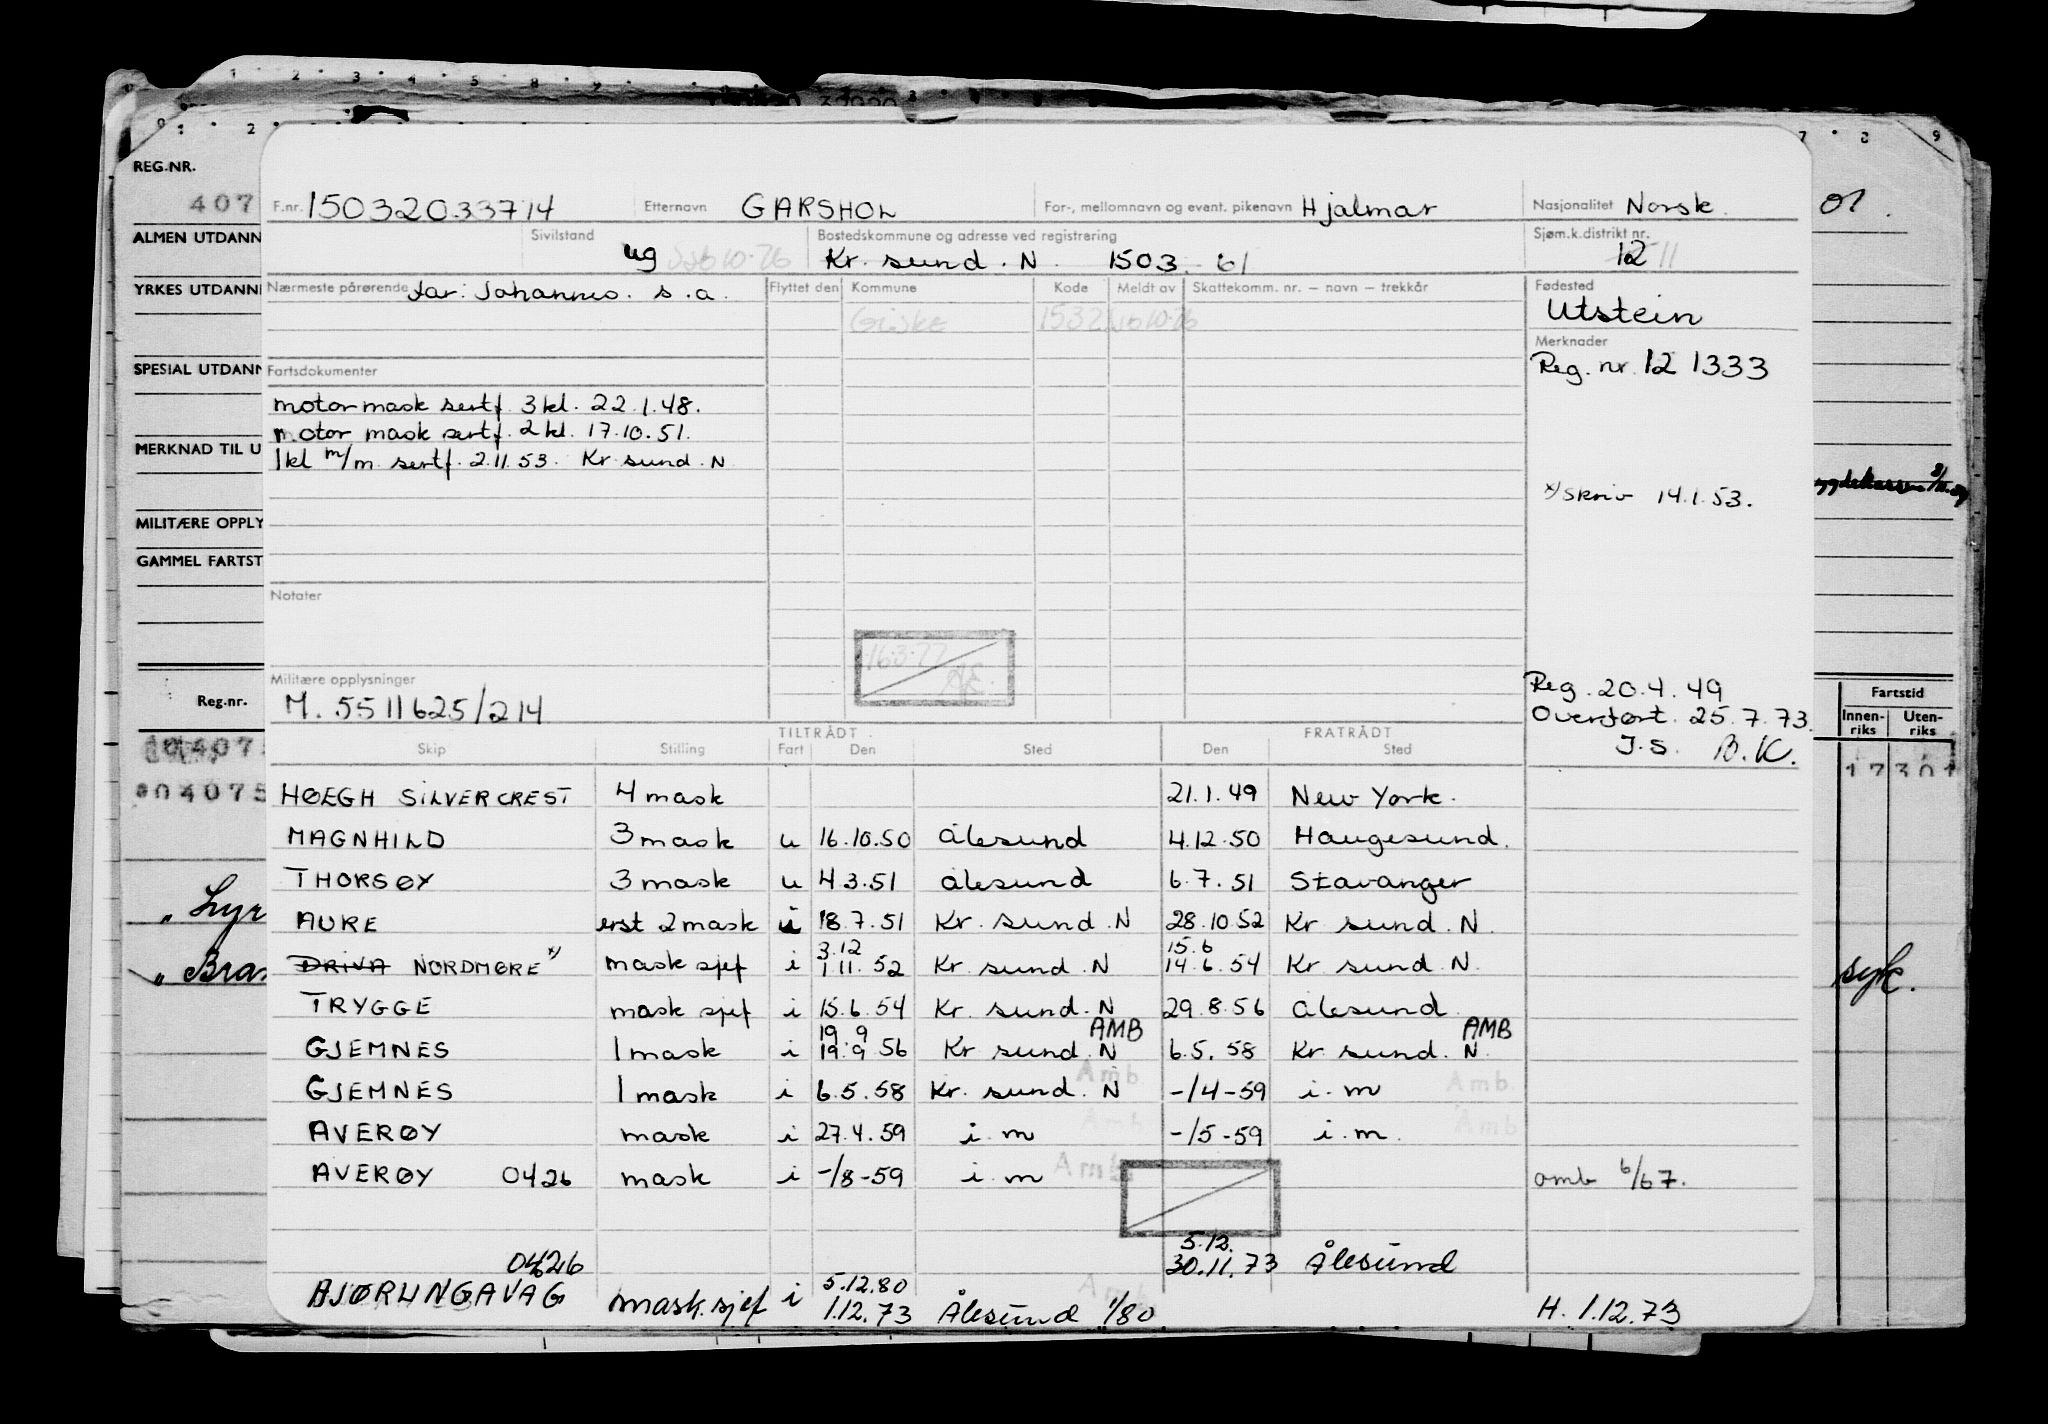 REG.NR.
407
ALMEN UTDANN
YRKES UTDANN
SPESIAL UTDANN
MERKNAD TIL U
MILITÆRE OPPLY
GAMMEL FARTST
Reg.nr.
04075
"Lyr
"Bra
F.nr. 15032033714 Etternavn GARSHOL For-, mellomnavn og event. pikenavn Hjalmar Nasjonalitet Norsk
Sivilstand ug Bostedskommune og adresse ved registrering Kr. sund. N. 1503 - 61 Sjøm.k.distrikt nr. 12 11
Nærmeste pårørende far: Johannes. s.a. Flyttet den Kommune Kode Meldt av Skattekomm. nr. – navn – trekkår Fødested
Giske 1532 Utstein
Merknader
Fartsdokumenter Reg. nr. 12 1333
motormask sertf. 3 kl. 22.1.48.
motor mask sertf. 2 kl. 17.10.51.
1 kl m/m. sertf. 2.11.53. Kr. sund. N
x/ skriv 14.1.53.
Notater
16.3.77
Militære opplysninger
M. 5511625/214
Reg. 20.4.49
Overført. 25.7.73.
J.S. B.K.
TILTRÅDT FRATRÅDT
Skip Stilling Fart Den Sted Den Sted
HØEGH SILVERCREST 4 mask 21.1.49 New York.
MAGNHILD 3 mask u 16.10.50 Ålesund 4.12.50 Haugesund.
THORSØY 3 mask u 4.3.51 Ålesund 6.7.51 Stavanger
AURE erst 2 mask i 18.7.51 Kr. sund. N 28.10.52 Kr. sund. N.
3.12 15.6
DRIVA NORDMØRE x/ mask sjef i 1.11.52 Kr. sund. N 14.6.54 Kr. sund. N.
TRYGGE mask sjef i 15.6.54 Kr. sund. N 29.8.56 Ålesund
19.9 AMB AMB
GJEMNES 1 mask i 19.9.56 Kr. sund. N 6.5.58 Kr. sund. N.
Amb Amb.
GJEMNES 1 mask i 6.5.58 Kr. sund. N -/4-59 i.m
Amb Amb
AVERØY mask i 27.4.59 i.m -/5-59 i.m.
AVERØY 0426 mask i -/8-59 i.m Amb amb 6/67.
5.12.
0426 30.11.73 Ålesund
5.12.80
BJØRLINGAVAG mask.sjef i 1.12.73 Ålesund 1/80 H. 1.12.73
ol.
Fartstid
Innenriks Utenriks
17301
syk.